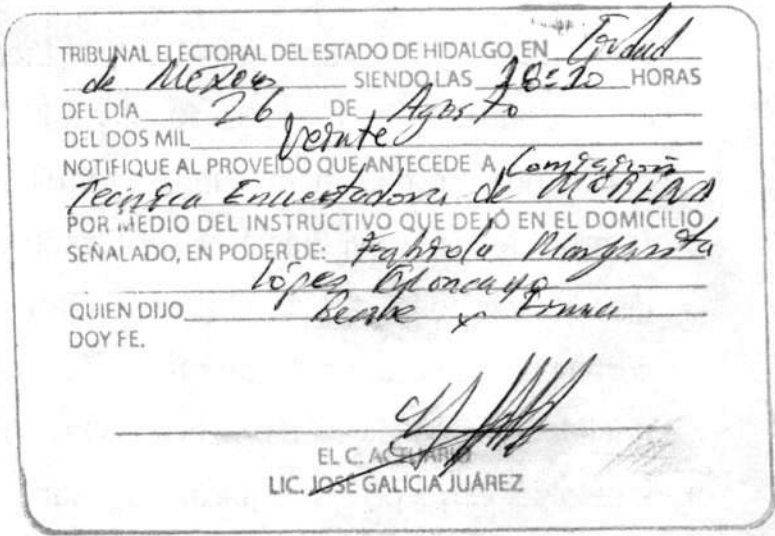 TRIBUNAL ELECTORAL DEL ESTADO DE HIDALGO, EN Ciudad
de Mexico SIENDO LAS 18:20 HORAS
DEL DÍA 26 DE Agosto
DEL DOS MIL Veinte
NOTIFIQUE AL PROVEÍDO QUE ANTECEDE A Comisión
Tecnica Encuestadora de MORENA
POR MEDIO DEL INSTRUCTIVO QUE DEJÓ EN EL DOMICILIO
SEÑALADO, EN PODER DE: Fabiola Margarita
López Moncayo
QUIEN DIJO Recibe y Firma
DOY FE.
EL C. ACTUARIO
LIC. JOSÉ GALICIA JUÁREZ